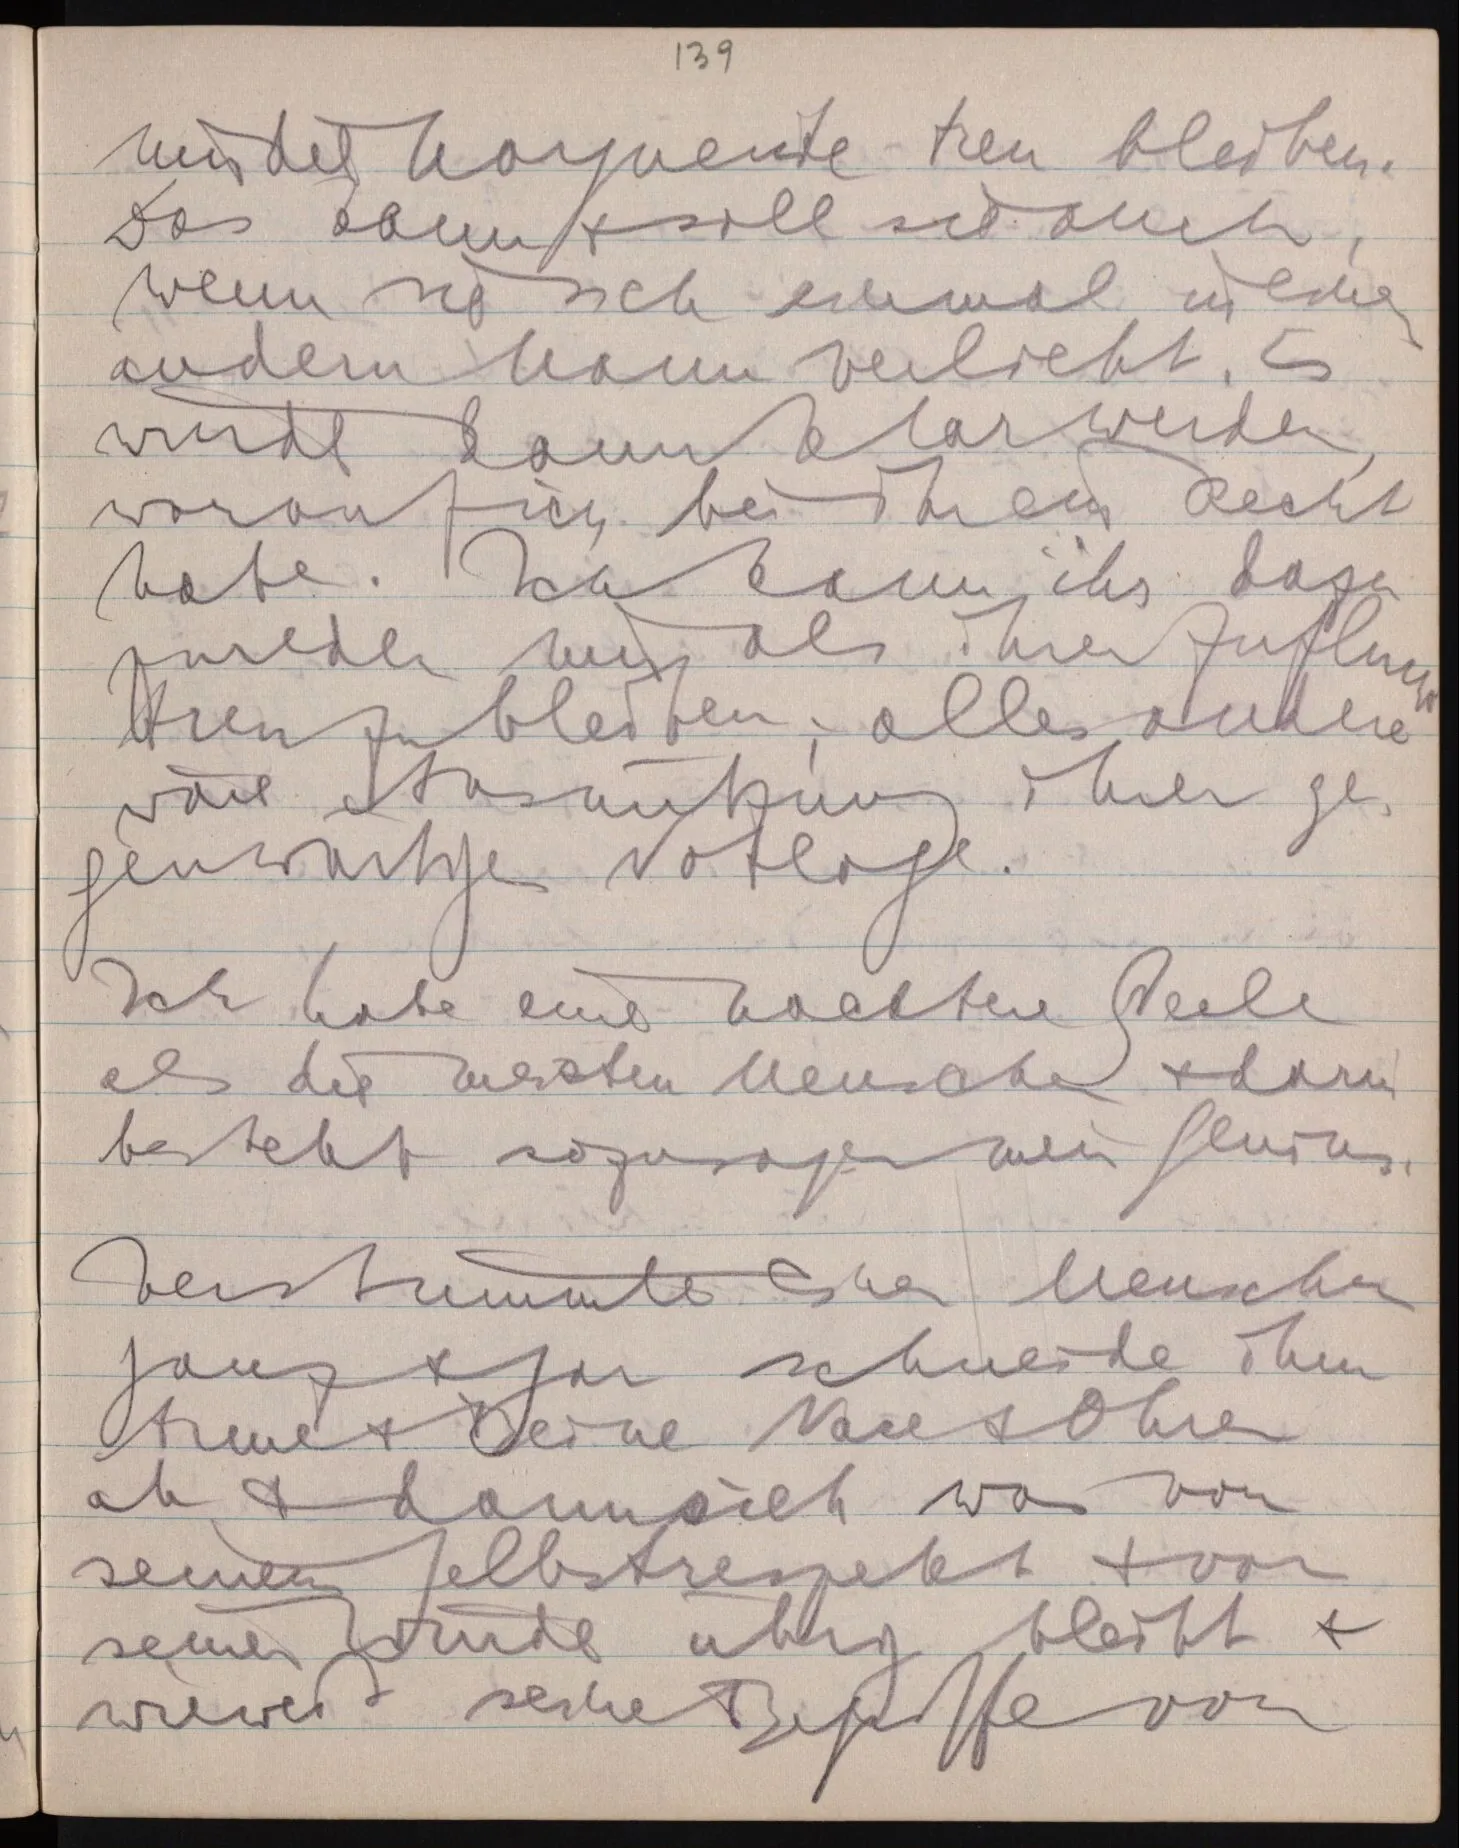 139
Marguerite treu bleiben.
Das kann & soll sie auch,
wenn sie sich einmal in einen
andern Mann verliebt. Es
würde dann klar werden,
worauf ich bei ihr ein Recht
habe. Ich kann ihr dazu
zureden mir als ihrer Zuflucht
treu zu bleiben; alles andere
wäre Ausnützung ihrer ge-
genwärtigen Notlage.
Ich habe eine nacktere Seele
als die meisten Menschen & darin
besteht sozusagen mein Genius.
Verstümmle einen Menschen
ganz & gar schneide ihm
Arme & Beine Nase & Ohren
ab & dann sieh was von
seinem Selbstrespekt & von
seiner Würde übrig bleibt &
wieweit seine Begriffe von